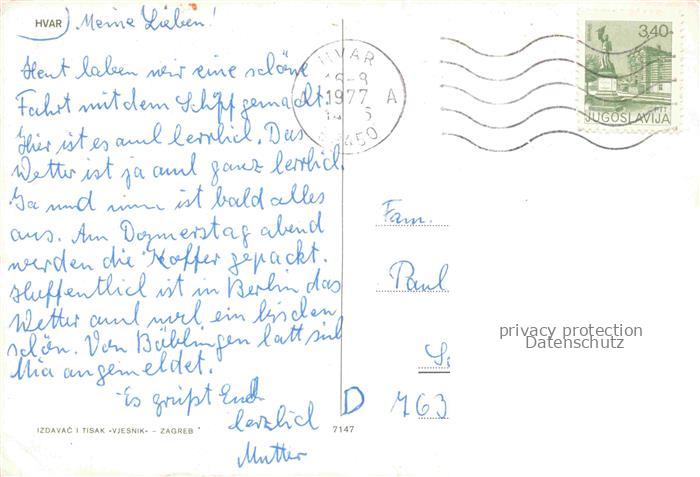 HVAR
Meine Lieben!
Heut haben wir eine schöne
Fahrt mit dem Schiff gemacht.
Hier ist es auch herrlich. Das
Wetter ist ja auch ganz herrlich.
Ja und nun ist bald alles
aus. Am Donnerstag abend
werden die Koffer gepackt.
Hoffentlich ist in Berlin das
Wetter auch noch ein bischen
schön. Von Böblingen hatt sich
Mia angemeldet.
Es grüßt Euch
herzlich
Mutter
IZDAVAČ I TISAK «VJESNIK» – ZAGREB
7147
HVAR
1977
A
450
3,40
PTT
JUGOSLAVIJA
Fam.
Paul
D 763
privacy protection
Datenschutz